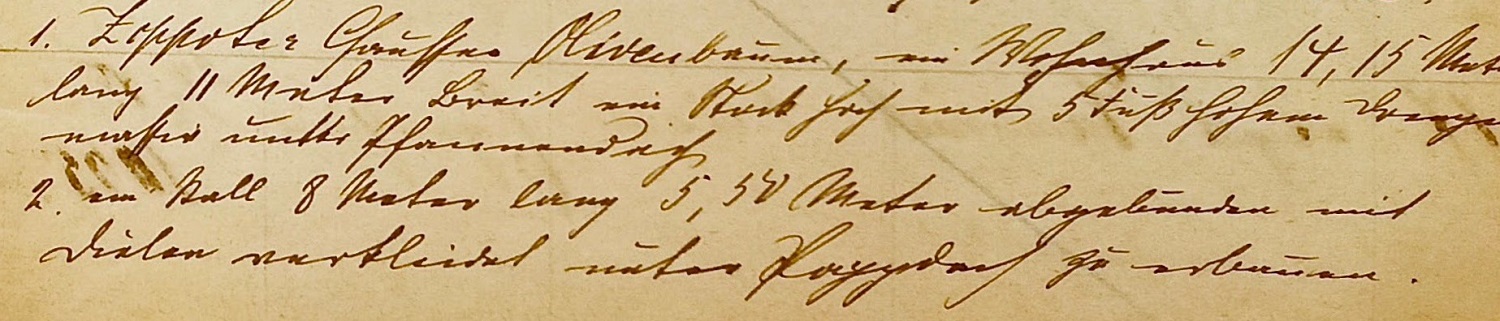 1. Zoppoter Chaussee Olivenbaum, ein Wohnhaus 14,15 Met
lang 11 Meter Breit ein Stock hoch mit 5 Fuß hohem
massiv unter Pfannendach
2. ein Stall 8 Meter lang 5,50 Meter abgebunden mit
Dielen verkleidet unter Pappdach zu erbauen.